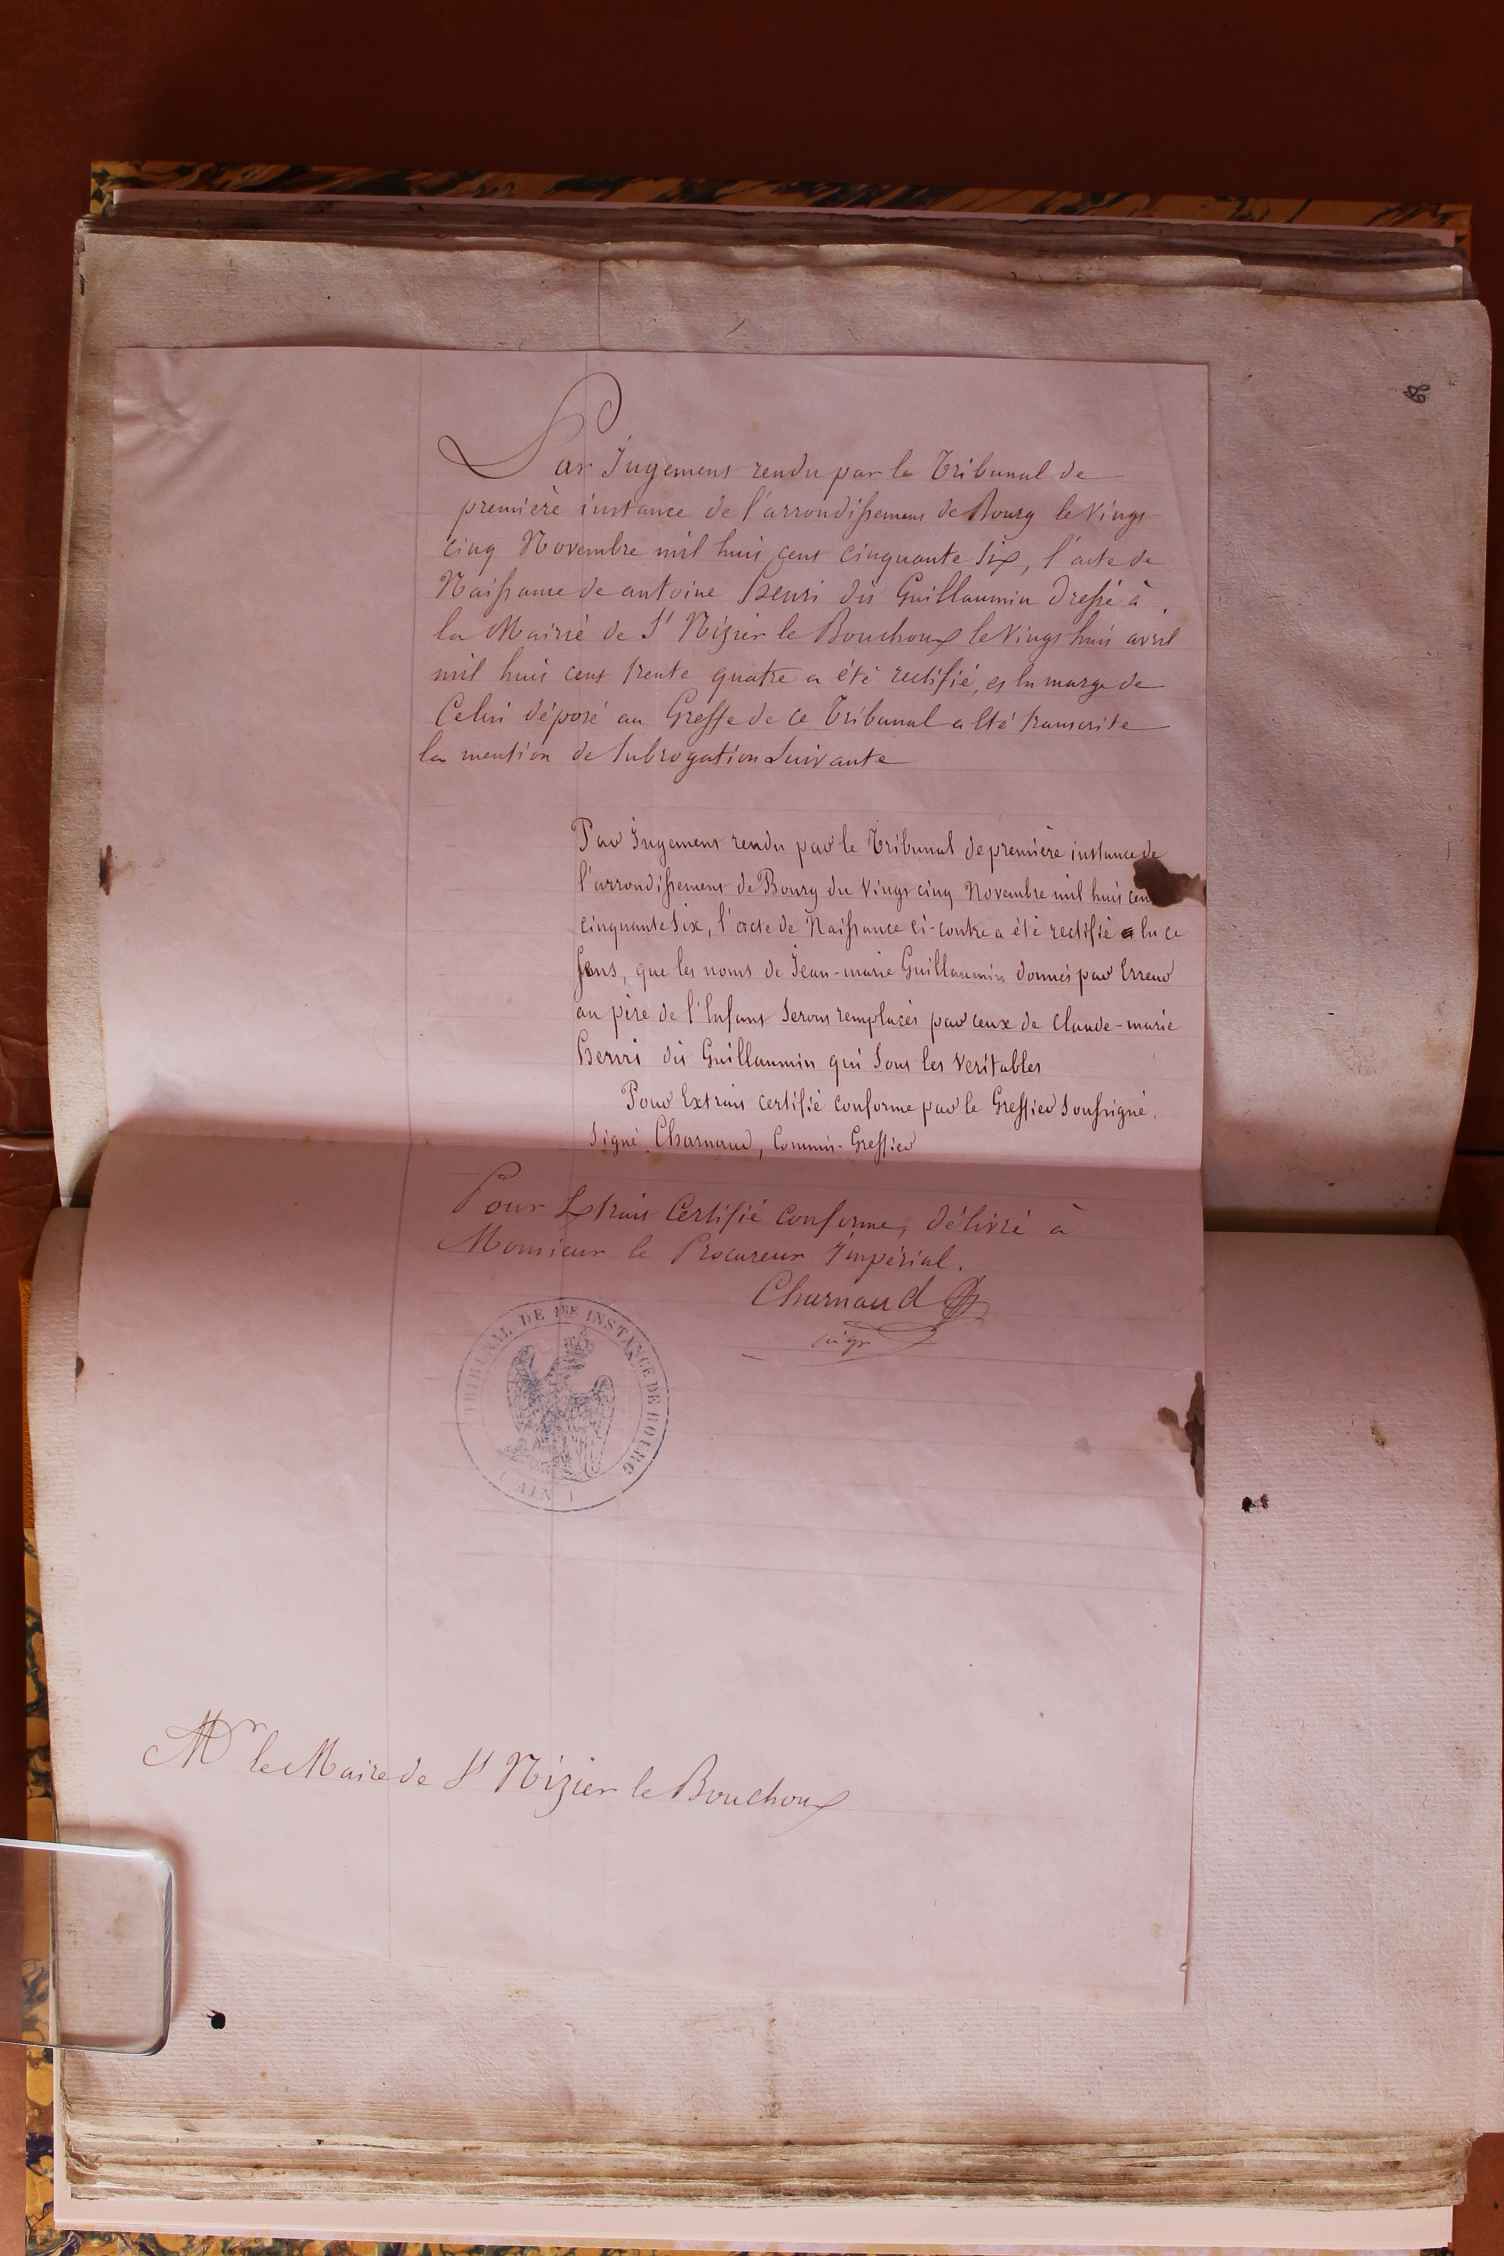 Par Jugement rendu par le Tribunal de
première instance de l'arrondissement de Bourg le Vingt
cinq Novembre mil huit cent cinquante Six, l'acte de
Naissance de antoine Henri dit Guillaumin Dressé à
la Mairie de St Nizier le Bouchoux le Vingt huit avril
mil huit cent trente quatre a été rectifié, et en marge de
Celui déposé au Greffe de ce Tribunal a été transcrite
la mention de Subrogation Suivante
Par Jugement rendu par le Tribunal de première instance de
l'arrondissement de Bourg du Vingt cinq Novembre mil huit cent
cinquante Six, l'acte de Naissance ci-contre a été rectifié en ce
Sens, que les noms de Jean-marie Guillaumin donnés par Erreur
au père de l'Enfant Seront remplacés par ceux de Claude-marie
Henri dit Guillaumin qui Sont les veritables
Pour Extrait certifié conforme par le Greffier Soussigné.
Signé Charnaud, Commis-Greffier
Pour Extrait Certifié conforme, délivré à
Monsieur le Procureur Impérial.
Charnaud
TRIBUNAL DE 1RE INSTANCE DE BOURG
(AIN)
Mr le Maire de St Nizier le Bouchoux